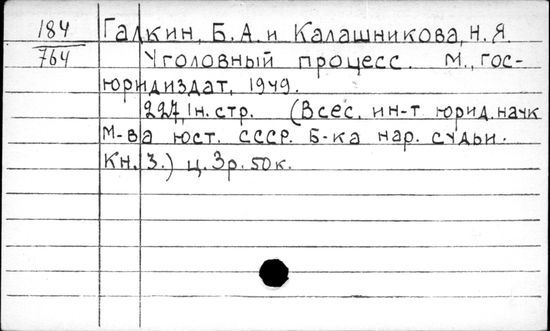 184
764
Галкин, Б. А. и Калашникова, Н. Я.
Уголовный процесс. М., гос-
юридиздат, 1949.
227, 1н. стр. (Всес. ин-т юрид. наук
М-ва юст. СССР. Б-ка нар. судьи.
Кн. 3.) ц. 3р. 50к.